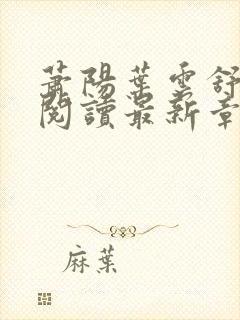 蕭陽葉雲舒
閱讀最新章
麻葉